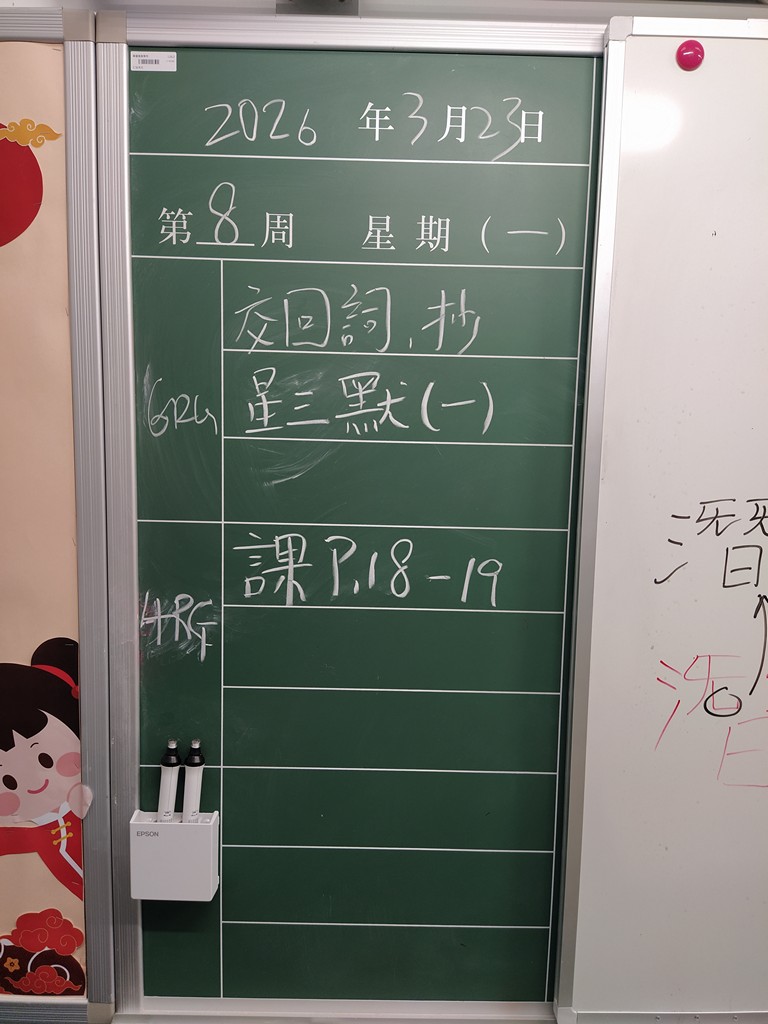 2026 年 3 月 23 日
第 8 周 星期 (一)
交回詞、抄
6RG
星三默(一)
課 P.18-19
4RG
EPSON